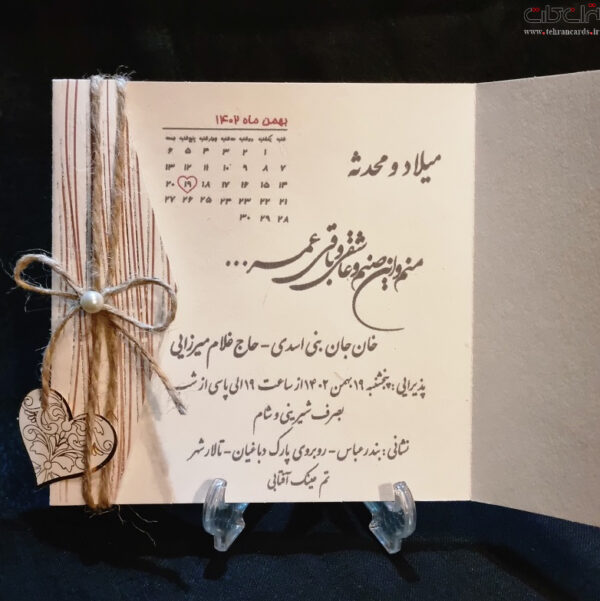 تهران کارت
www.tehrancards.ir
بهمن ماه ۱۴۰۲
شنبه یکشنبه دوشنبه سه‌شنبه چهارشنبه پنجشنبه جمعه
۱ ۲ ۳ ۴ ۵ ۶
۷ ۸ ۹ ۱۰ ۱۱ ۱۲ ۱۳
۱۴ ۱۵ ۱۶ ۱۷ ۱۸ ۱۹ ۲۰
۲۱ ۲۲ ۲۳ ۲۴ ۲۵ ۲۶ ۲۷
۲۸ ۲۹ ۳۰
میلاد و محدثه
منم و این صنم و عاشقی و باقی عمر ...
خان جان بنی اسدی - حاج غلام میرزایی
پذیرایی : پنجشنبه ۱۹ بهمن ۱۴۰۲ از ساعت ۱۹ الی پاسی از شب
بصرف شیرینی و شام
نشانی : بندرعباس - روبروی پارک دباغیان - تالار شهر
تم عینک آفتابی